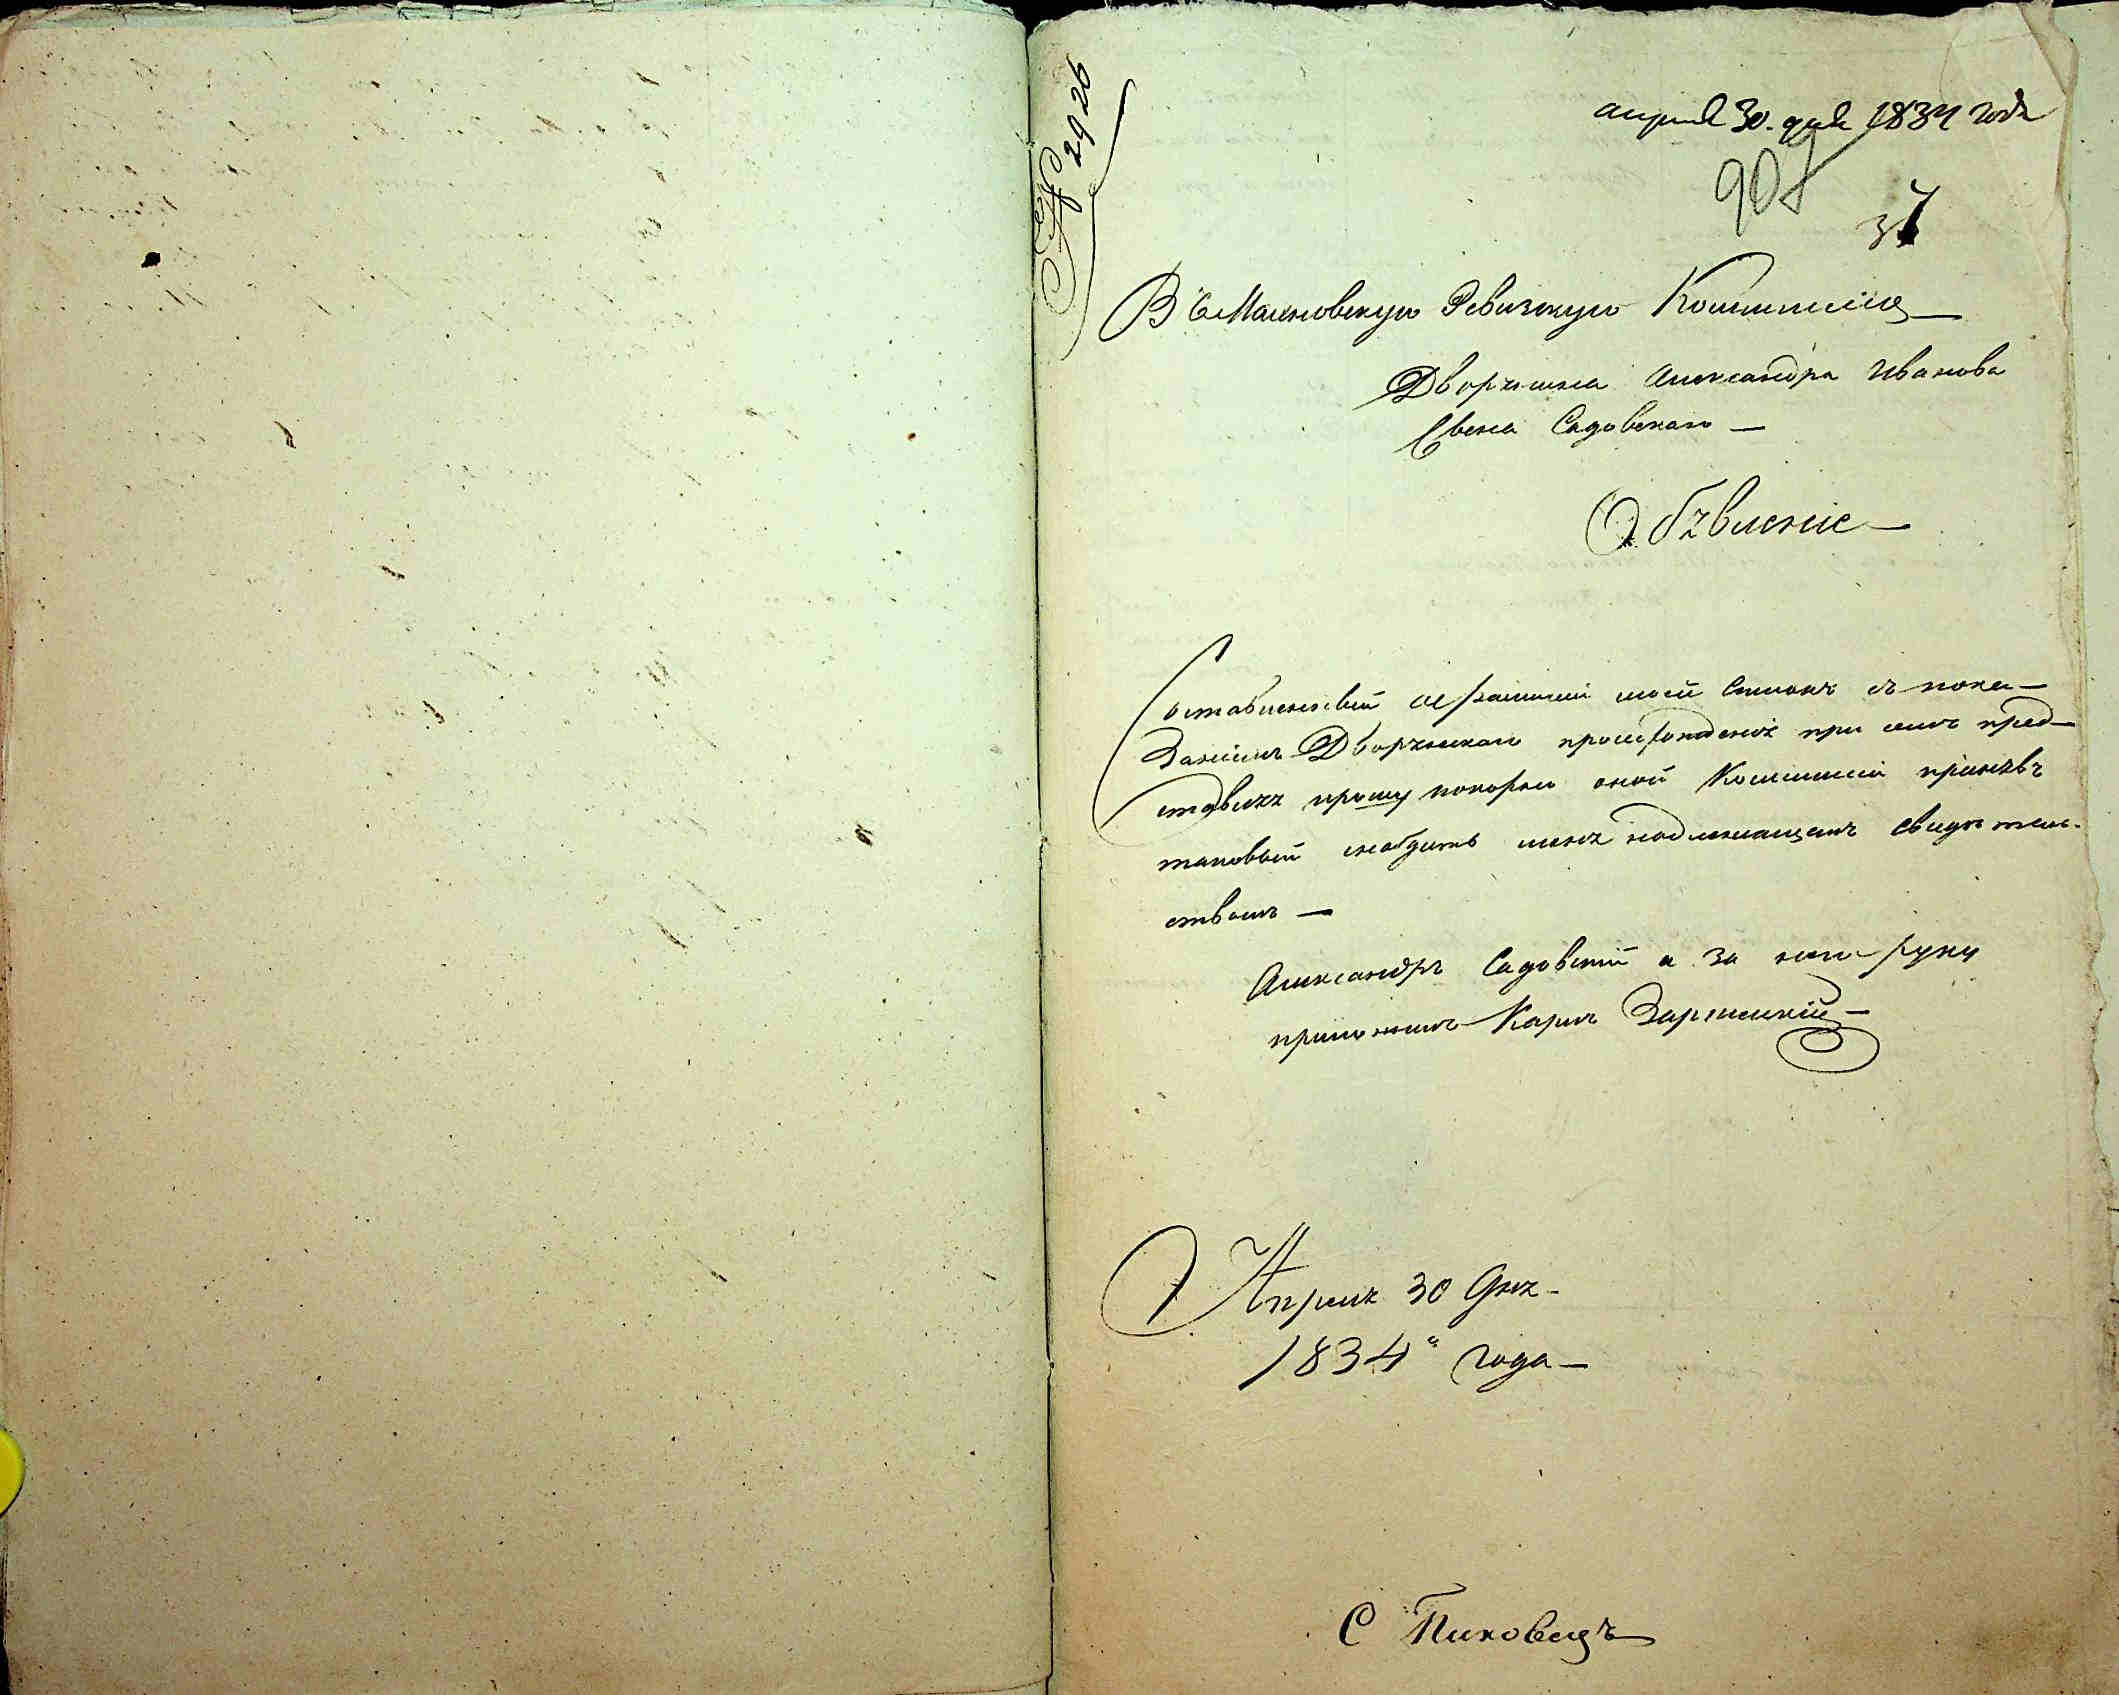 № 2926
априля 30. дня 1834 года
907
37
Въ Махновскую Ревизкую Коммисію
Дворянина Александра Иванова
Сына Садовскаго
Обявленіе
Составленный о фамиліи моей Списокъ съ пока-
заніемъ Дворянскаго происхожденія при семъ пред-
ставляя прошу покорно оной Коммисіи принявъ
таковый снабдить меня надлежащемъ свидѣтель-
ствомъ
Александръ Садовскій а за него руку
приложилъ Карлъ
Апреля 30 Дня
1834 года
С Пиковецъ